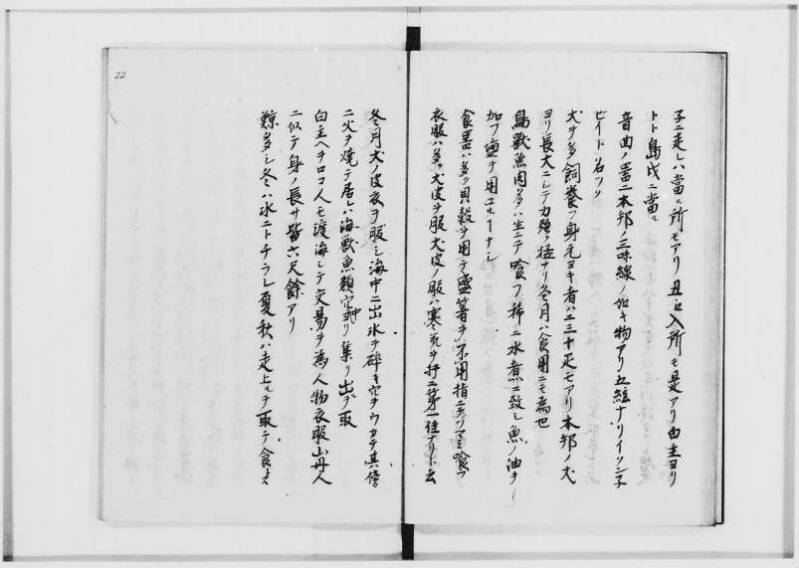 子ニ走レハ當ル所モアリ丑ニ入所モ是アリ白主ヨリ
トト島戌ニ當ル
音曲ノ器ニ本邦ノ三味線ノ如キ物アリ五絃ナリイツンチ
ビイト名ツク
犬ヲ多飼養フ身元ヨキ者ハ二三十疋モアリ本邦ノ犬
ヨリ長大ニシテ力強ク猛ナリ冬月ハ食用ニモ為也
鳥獣魚肉多ハ生ニテ喰フ稀ニ水煮ニ致シ魚ノ油ヲ
加フ塩ヲ用ユルーナシ
食器ハ多ク貝殻ヲ用テ盛箸ヲ不用指ニテツマミ喰フ
衣服ハ多ク犬皮ヲ服犬皮ノ服ハ寒気ヲ拝ニ第一佳ナリト云
冬月犬ノ皮衣ヲ服シ海中ニ出氷ヲ砕キ穴ヲウカテ其傍
ニ火ヲ焼テ居レハ海獣魚類穴ヨリ集リ出ヲ取
白主ヘヲロコ人モ渡海シテ交易ヲ為人物衣服山丹人
ニ似テ身ノ長サ皆六尺餘アリ
鯨多シ冬ハ氷ニトチラレ夏秋ハ走上ルヲ取テ食
22